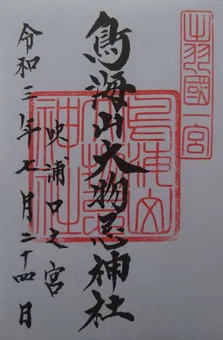 出羽國一宮
鳥海山大物忌神社
吹浦口之宮
令和三年七月二十四日
鳥海山大物忌神社